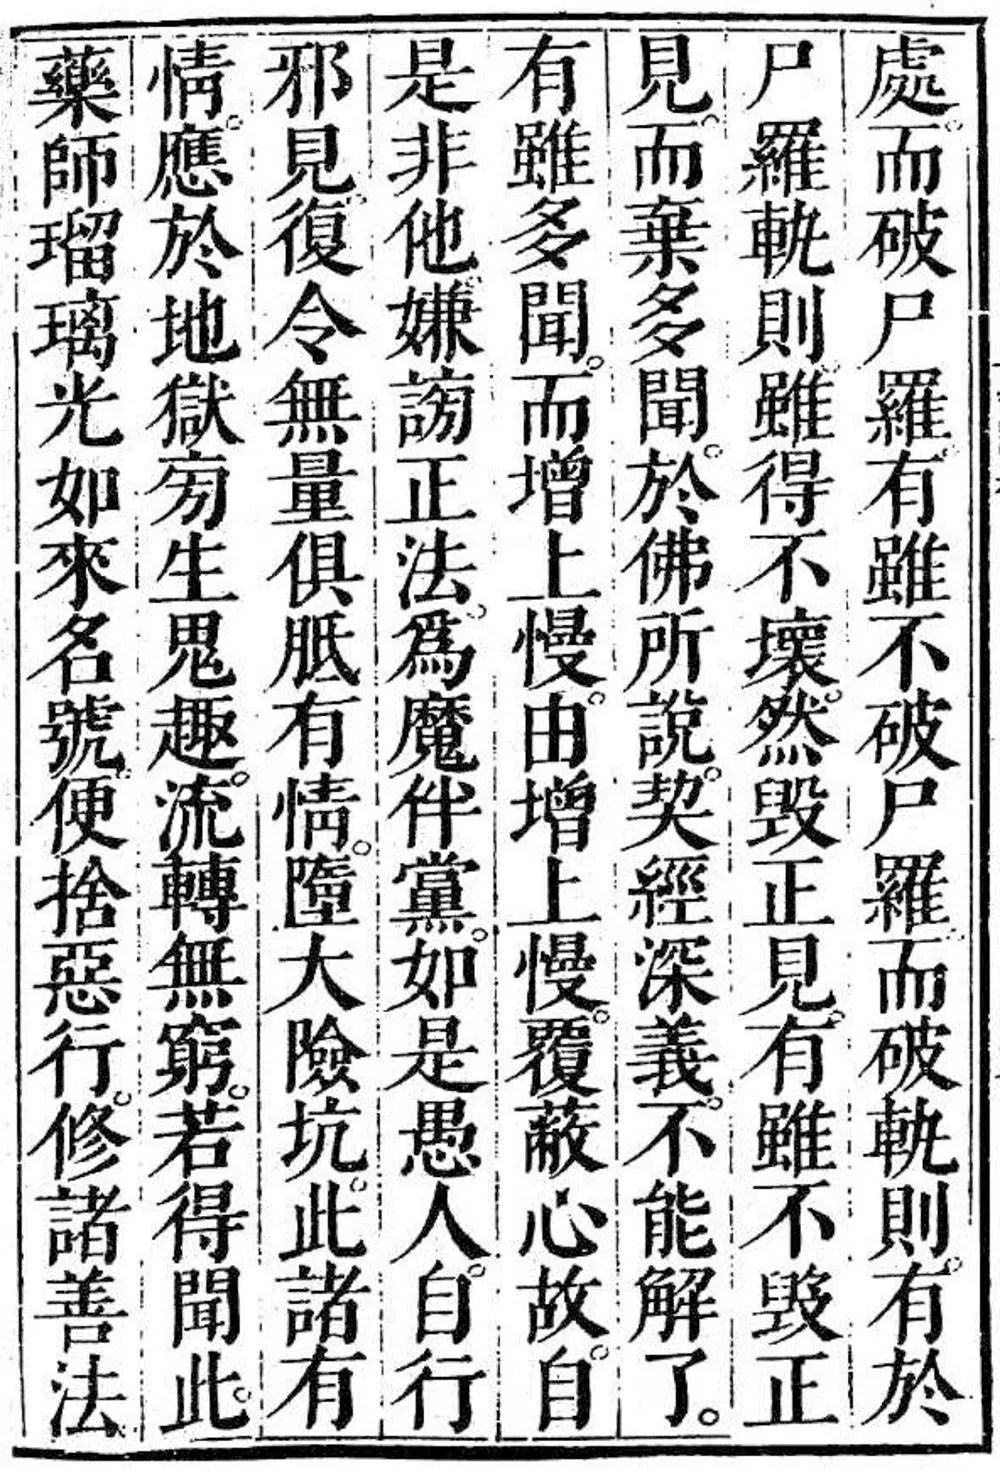 處而破尸羅有雖不破尸羅而破軌則有於
尸羅軌則雖得不壞然毀正見有雖不毀正
見而棄多聞於佛所說契經深義不能解了
有雖多聞而增上慢由增上慢覆蔽心故自
是非他嫌謗正法為魔伴黨如是愚人自行
邪見復令無量俱胝有情墮大險坑此諸有
情應於地獄旁生鬼趣流轉無窮若得聞此
藥師瑠璃光如來名號便捨惡行修諸善法